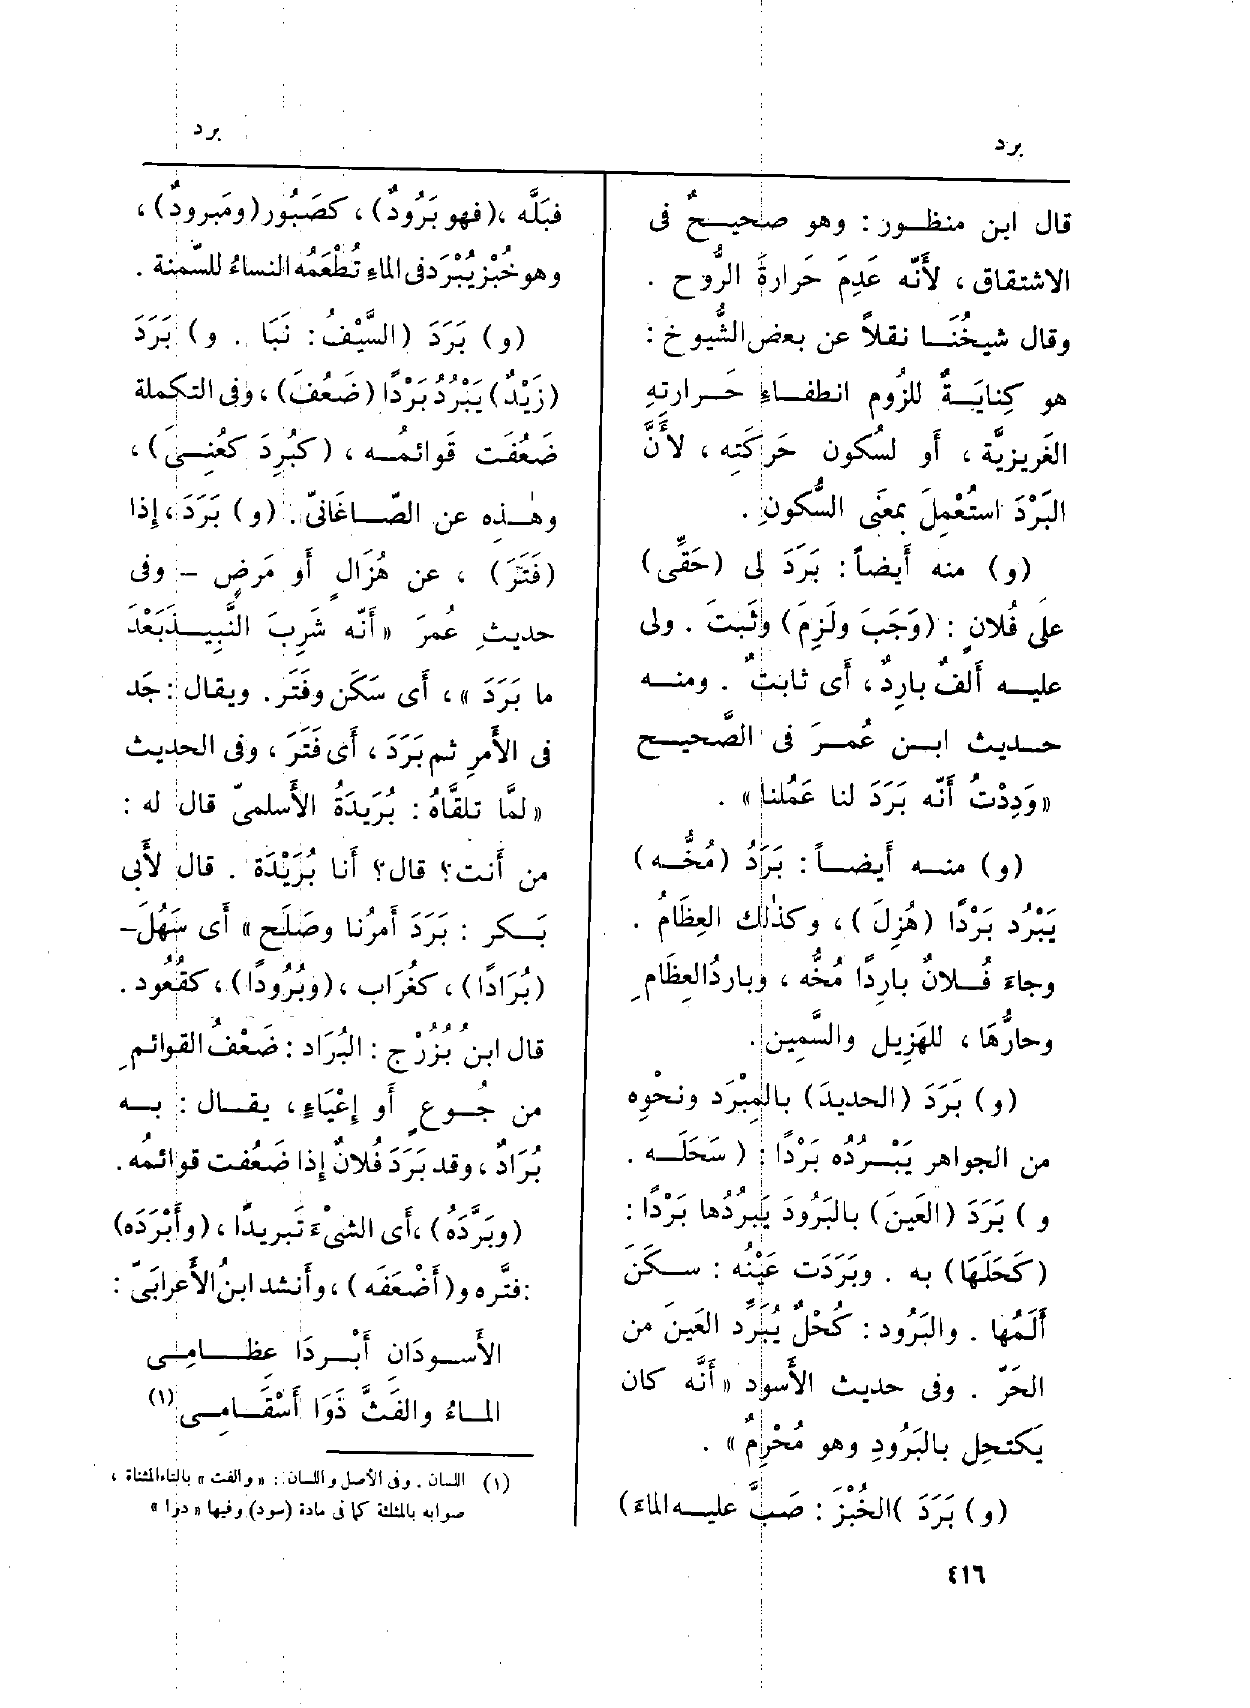 برد
برد
قال ابن منظــور : وهو صحيــحٌ فى
الاشتقاق ، لأَنّه عَدِمَ حَرارةَ الرُّوح .
وقال شيخُنَــا نقلاً عن بعض الشُّيوخ :
هو كِنايَــةٌ للزُوم انطفــاءِ حَــرارتِهِ
الغَريزيَّة ، أَو لسُكون حَرَكَتِه ، لأَنَّ
البَرْدَ استُعْمِلَ بمعنَى السُّكونِ .
(و) منه أَيضاً : بَرَدَ لى (حَقِّى)
علَى فُلانٍ : (وَجَبَ ولَزِمَ) وثَبتَ . ولى
عليــه أَلفٌ باردٌ ، أَى ثابتٌ . ومنــه
حــديث ابــن عُمــرَ فى الصَّحيــح
«وَدِدْتُ أَنّه بَرَدَ لنا عَمُلنا» .
(و) منــه أَيضــاً : بَرَدَ (مُخُّــه)
يَبْرُد بَرْدًا (هُزِلَ) ، وكذٰلك العِظَامُ .
وجاءَ فُــلانٌ بارِدًا مُخُّه ، وباردُ العِظَامِ
وحارُّهَا ، للهَزِيل والسَّمِين .
(و) بَرَدَ (الحديدَ) بالمِبْرَد ونحْوِه
من الجواهر يَبْــرُدُه بَرْدًا : (سَحَلَــه .
و) بَرَدَ (العَينَ) بالبَرُودَ يَبرُدُها بَرْدًا :
(كَحَلَهَا) به . وبَرَدَت عَيْنُه : ســكَنَ
أَلَمُها . والبَرُود : كُحْلٌ يُبَرِّد العَينَ من
الحَرّ . وفى حديث الأَسود «أَنَّه كان
يكتحِل بالبَرُودِ وهو مُحْرِمٌ» .
(و) بَرَدَ )الخُبْزَ : صَبَّ عليــه الماءَ)
فبَلَّه ،(فهو بَرُودٌ) ، كصَبُور (ومَبرودٌ) ،
وهو خُبْز يُبْرَد فى الماءِ تُطْعَمُه النساءُ للسِّمنة .
(و) بَرَدَ (السَّيْفُ : نَبَا . و) بَرَدَ
(زَيْدٌ) يَبْرُدُ بَرْدًا (ضَعُفَ) ، وفى التكملة
ضَعُفَت قَوائمُــه ، (كبُرِدَ كعُنِــىَ) ،
وهٰــذِه عن الصّــاغَانىّ . (و) بَرَدَ ، إذا
(فَتَرَ) ، عن هُزَالٍ أَو مَرضٍ – وفى
حديثِ عُمرَ «أَنّه شَرِبَ النَّبيــذَ بَعْدَ
ما بَرَدَ » ، أَى سَكَن وفَتَر . ويقال : جَد
فى الأَمرِ ثم بَرَدَ ، أَى فَتَرَ ، وفى الحديث
«لمَّا تلقَّاهُ : بُرَيدَةُ الأَسلمىّ قال له :
من أَنت؟ قال؟ أَنا بُرَيْدَة . قال لأَبى
بَــكر : بَرَدَ أَمرُنا وصَلَح» أَى سَهُلَ–
(بُرَادًا) ، كغُراب ،(وبُرُودًا) ، كقُعُود .
قال ابن بُزُرْج : البُرَاد : ضَعْفُ القوائمِ
من جُــوعٍ أَو إعْيَاءٍ ، يقــال : بــه
بُرَادٌ ، وقد بَرَدَ فُلانٌ إذا ضَعُفت قوائمُه .
(وبَرَّدَهُ) ،أَى الشىْءَ تَبريدًا ، (وأَبْرَدَه)
:فتَّره و(أَضْعَفَه) ، وأَنشد ابنُ الأَعرابَىّ :
الأَســودَانِ أَبْــردَا عِظَــامِــى
المــاءُ والفَثُّ ذَوَا أَسْقَــامِــى (١)
(١) اللسان . وفى الأصل واللسان : «والفت» بالتاء المثناة ،
صوابه بالمثلثة كما فى مادة (سود) وفيها «دوا»
٤١٦